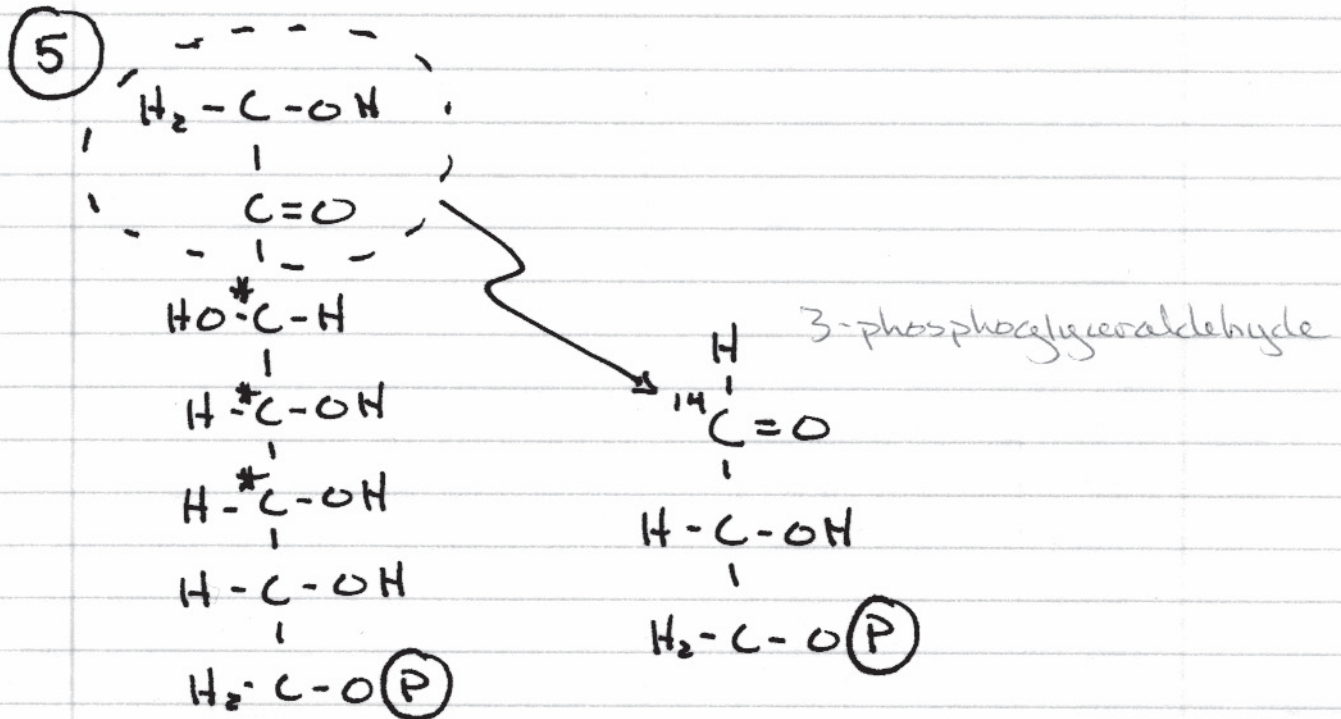 5
H₂-C-OH
C=O
HO-*C-H
H-*C-OH
H-*C-OH
H-C-OH
H₂-C-O P
3-phosphoglyceraldehyde
H
¹⁴C=O
H-C-OH
H₂-C-O P